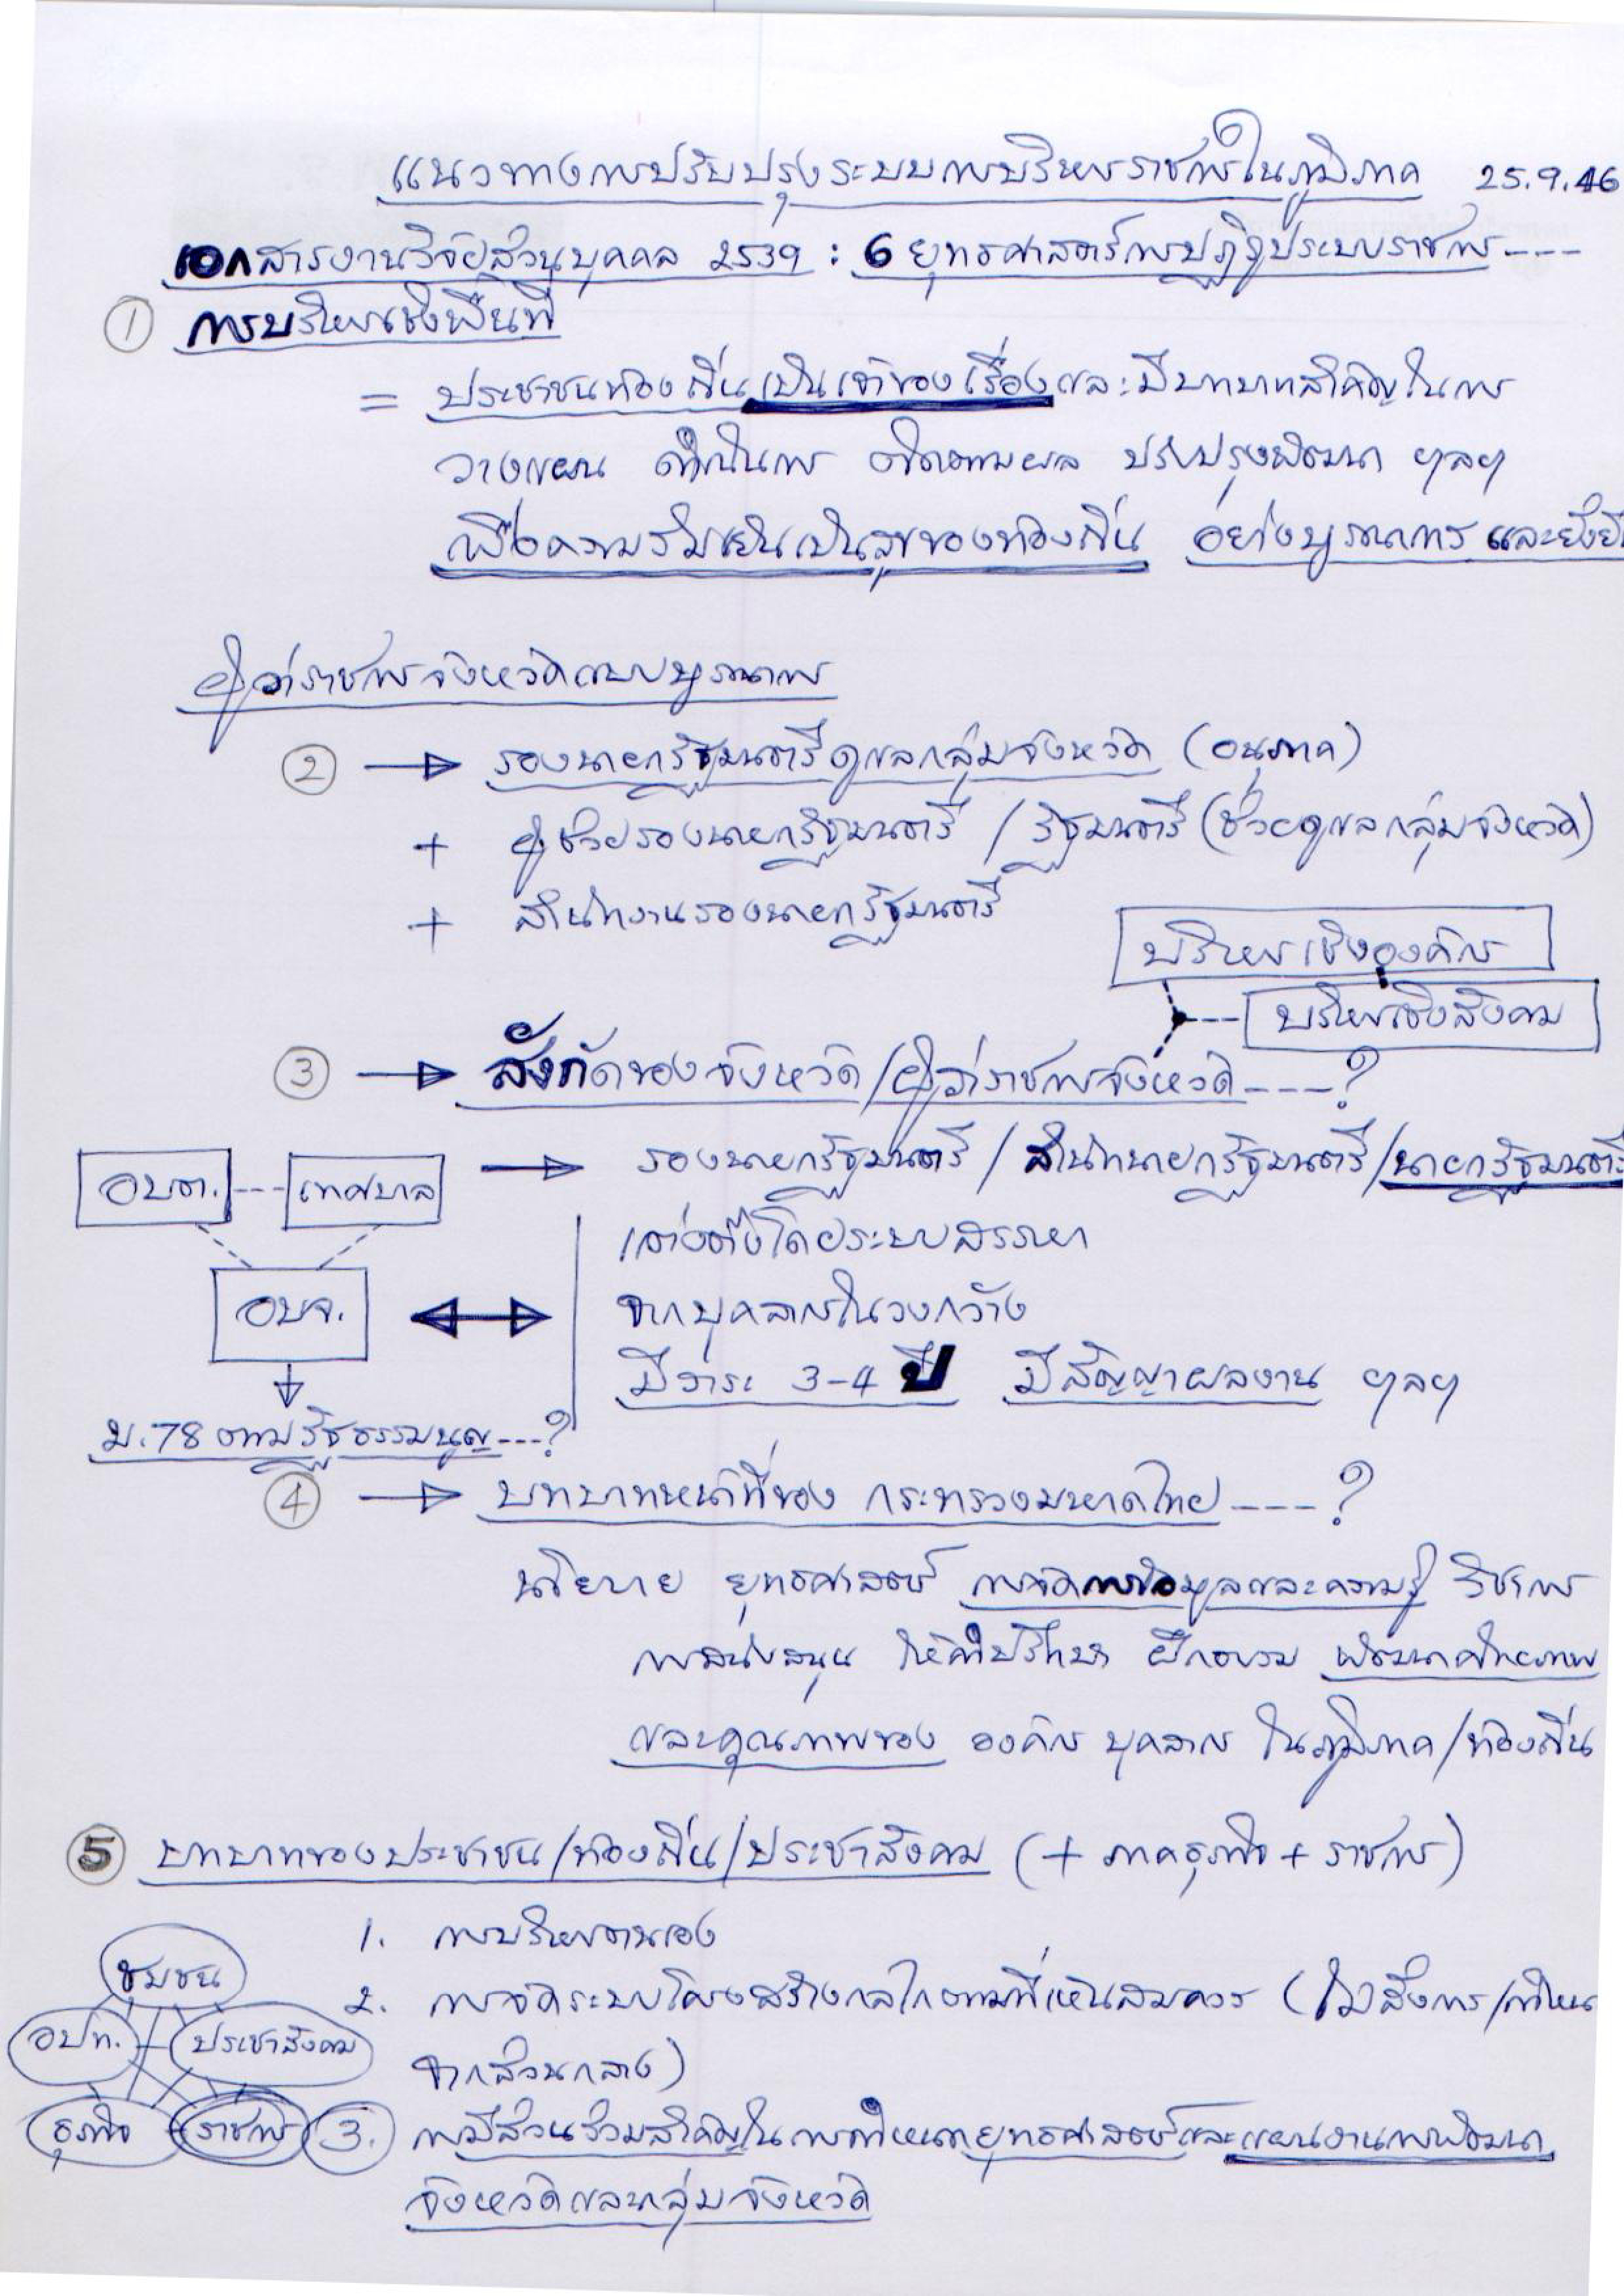 แนวทางการปรับปรุงระบบการบริหารราชการในภูมิภาค 25.9.46
เอกสารงานวิจัยส่วนบุคคล 2539 : 6 ยุทธศาสตร์การปฏิรูประบบราชการ----
① การบริหารเชิงพื้นที่
= ประชาชนท้องถิ่นเป็นเจ้าของเรื่องและมีบทบาทสำคัญในการ
วางแผน ดำเนินการ ติดตามผล ปรับปรุงพัฒนา ฯลฯ
เพื่อความร่มเย็นเป็นสุขของท้องถิ่น อย่างบูรณาการ และยั่งยืน
ผู้ว่าราชการจังหวัดแบบบูรณาการ
② → รองนายกรัฐมนตรีดูแลกลุ่มจังหวัด (อนุภาค)
+ ผู้ช่วยรองนายกรัฐมนตรี / รัฐมนตรี (ช่วยดูแลกลุ่มจังหวัด)
+ สำนักงานรองนายกรัฐมนตรี
บริหารเชิงองค์กร
บริหารเชิงสังคม
③ → สังกัดของจังหวัด/ผู้ว่าราชการจังหวัด----?
อบต.---เทศบาล → รองนายกรัฐมนตรี / สำนักนายกรัฐมนตรี/นายกรัฐมนตรี
แต่งตั้งโดยระบบสรรหา
อบจ. ↔ จากบุคลากรในวงกว้าง
มีวาระ 3-4 ปี มีสัญญาผลงาน ฯลฯ
ม.78 ตามรัฐธรรมนูญ---?
④ → บทบาทหน้าที่ของ กระทรวงมหาดไทย----?
นโยบาย ยุทธศาสตร์ การจัดการข้อมูลและความรู้ วิชาการ
การสนับสนุน ให้คำปรึกษา ฝึกอบรม พัฒนาศักยภาพ
และคุณภาพของ องค์กร บุคลากร ในภูมิภาค/ท้องถิ่น
⑤ บทบาทของประชาชน/ท้องถิ่น/ประชาสังคม (+ ภาคธุรกิจ + ราชการ)
1. การบริหารตนเอง
ชุมชน
2. การจัดระบบโครงสร้างกลไกตามที่เห็นสมควร (ไม่สั่งการ/กำหนด
อปท. ประชาสังคม
จากส่วนกลาง)
ธุรกิจ ราชการ
3. การมีส่วนร่วมสำคัญในการกำหนดยุทธศาสตร์และแผนงานการพัฒนา
จังหวัดและกลุ่มจังหวัด